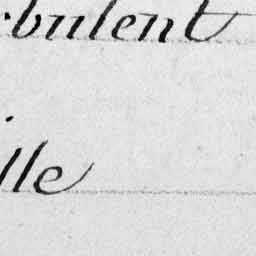 bulent
lle